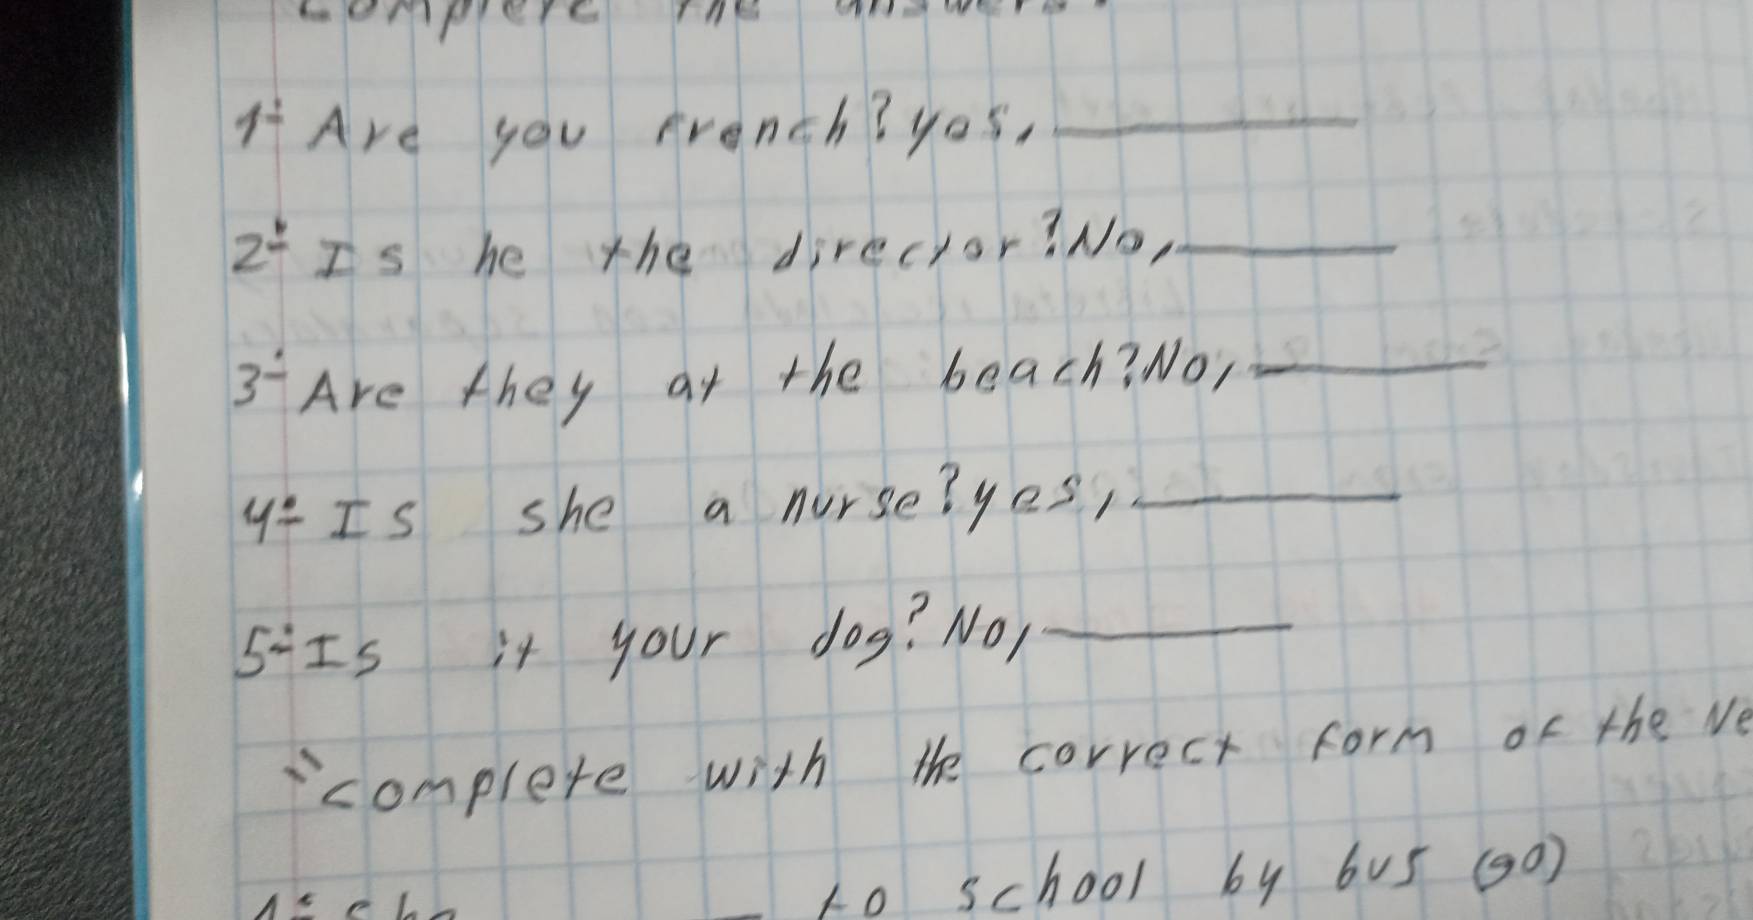 Complete the answers.
1- Are you french? yes, ________
2- Is he the director? No, ________
3- Are they at the beach? No, ________
4- Is she a nurse? yes, ________
5- Is it your dog? No, ________
"complete with the correct form of the
1- she ________ to school by bus (go)